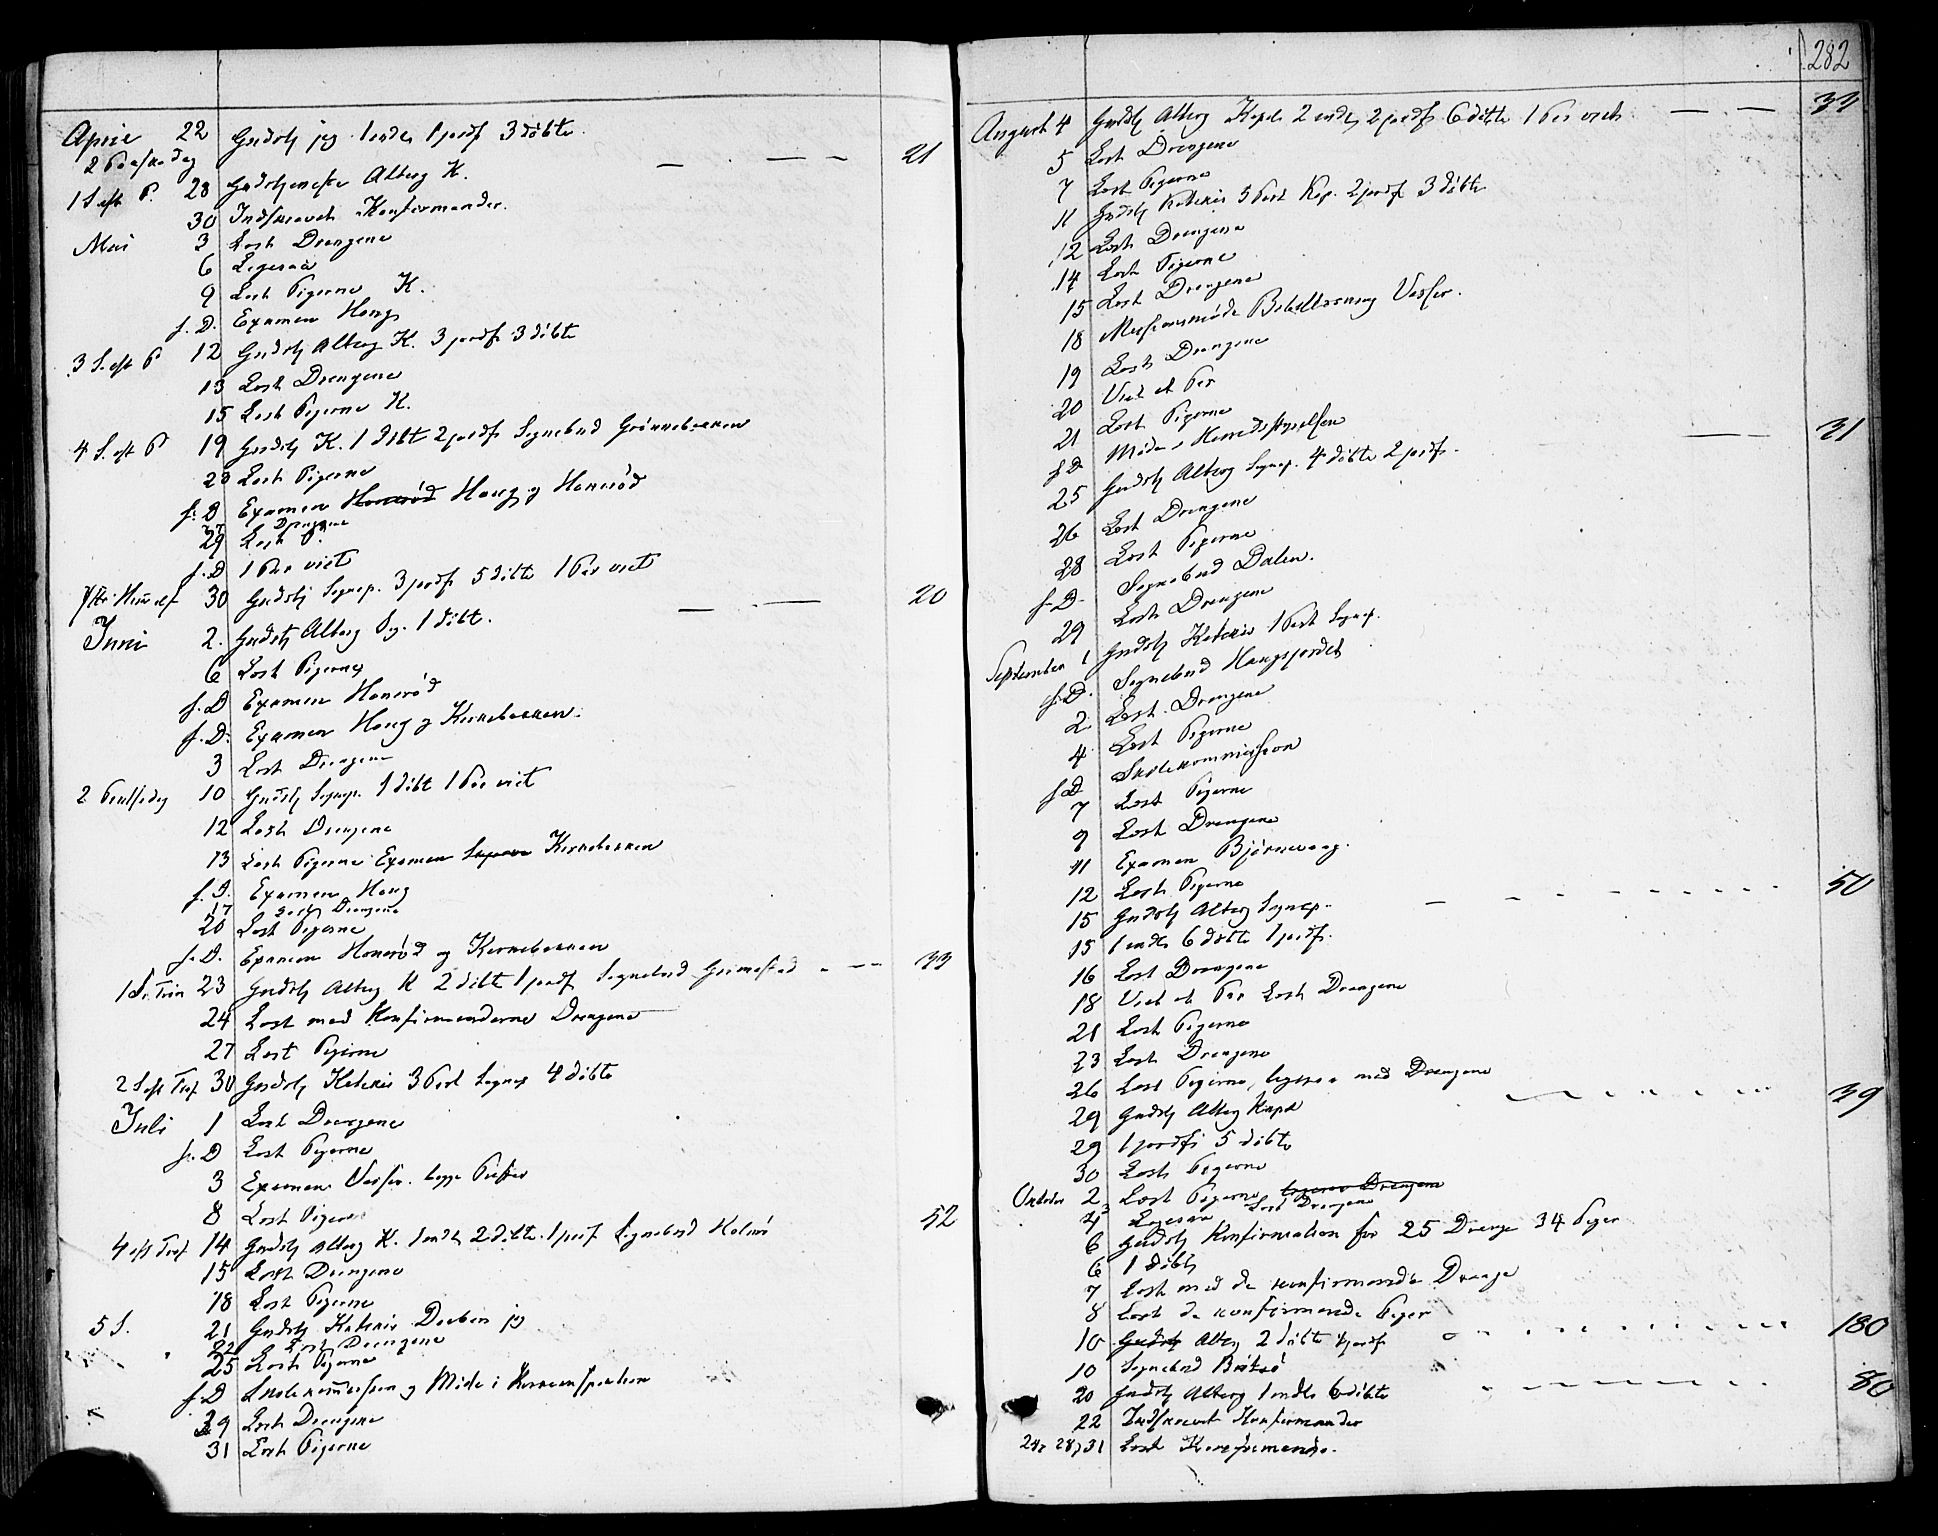 April 22 Gudstj jeg. 1 indl. 1 jordf 3 døbte
2 Paaskedag — — — 21
1 S. eft P. 28 Gudstjeneste Alterg K.
30 Indskrevet Konfirmander.
Mai 3 Læst Drengene
6 Ligesaa
9 Læst Pigerne K.
s. D. Examen Haug
3 S. eft P 12 Gudstj Alterg K. 3 jordf. 3 døbte
13 Læst Drengene
15 Læst Pigerne K.
4 S. eft P 19 Gudstj K. 1 døbt 2 jordf Sognebud Grønnebakken
23 Læst Pigerne
s. D Examen Hanerød Haug og Hanerød
27 Drengene
29 Læst P.
s. D 1 Par viet
Kr. Himelf 30 Gudstj Sognep. 3 jordf. 5 døbte 1 Par viet
Juni 2. Gudstj Alterg Sg. 1 døbt. — — 20
6 Læst Pigerne
s. D Examen Hanerød
s. D. Examen Haug og Kirkebakken.
3 Læst Drengene
2 Pentsedag 10 Gudstj Sognep. 1 døbt 1 Par viet
12 Læst Drengene
13 Læst Pigerne Examen Kirkebakken
s. D. Examen Haug
17 Læst Drengene
20 Læst Pigerne
s. D. Examen Hanerød og Kirkebakken
1 S. Trin 23 Gudstj Alterg K 2 døbt 1 jordf Sognebud Grimestad - — — 33
24 Læst med Konfirmanderne Drengene
27 Læst Pigerne
2 S eft Tref 30 Gudstj Katekis 3 Part Sognep 4 døbte
Juli 1 Læst Drengene
s. D Læst Pigerne
3 Examen Vasser. begge Prester
8 Læst Pigerne
4 eft Tref 14 Gudstj Alterg K. 1 indl. 2 døbte. 1 jordf Sognebud 52
15 Læst Drengene
18 Læst Pigerne
5 S. 21 Gudstj Katekis jeg
22 Læst Drengene
25 Læst Pigerne
s. D Skolekommission og Møde i Herredsstyrelsen
29 Læst Drengene
31 Læst Pigerne
282
August 4 Gudstj Alterg Kapel 2 indl, 2 jordf. 6 døbte 1 Par viet — — 33
5 Læst Drengene
7 Læst Pigerne
11 Gudstj Katekis 5 Part Kap. 2 jordf 3 døbte
12 Læst Drengene
14 Læst Pigerne
15 Læst Drengene
18 Missionsmøde Bibellæsning Vasser.
19 Læst Drengene
20 Viet et Par
21 Læst Pigerne
s. D Møde i Herredsstyrelsen
25 Gudstj Alterg Sognep. 4 døbte 2 jordf. — — 31
26 Læst Drengene
28 Læst Pigerne
s. D. Sognebud Dalen.
29 Læst Drengene
September 1 Gudstj Katekis 1 Part Sognep.
s. D. Sognebud Haugsjordet
2 Læst Drengene
4 Læst Pigerne
s. D Skolekommission
7 Læst Pigerne
9 Læst Drengene
11 Examen Bjørnevaag.
12 Læst Pigerne
15 Gudstj Alterg Sognep. — — — 50
15 1 indl. 6 døbte 1 jordf.
16 Læst Drengene
18 Viet et Par Læst Drengene
21 Læst Pigerne
23 Læst Drengene
26 Læst Pigerne, ligesaa med Drengene
29 Gudstj Alterg Kapel — — — 39
29 1 jordf. 5 døbte
30 Læst Pigerne
Oktober 2 Læst Pigerne ligesaa Drengene
3 Læst Drengene
4 Ligesaa
6 Gudstj Konfirmation for 25 Drenge 34 Piger
6 1 døbt
7 Læst med de konfirmerede Drenge
8 Læst de konfirmerede Piger
10 Gudstj Alterg 2 døbte 4 jordf — — — 180
10 Sognebud
20 Gudstj Alterg 1 indl. 6 døbte — — — 80
22 Indskrevet Konfirmander
24, 28, 31 Læst Konfirmande.